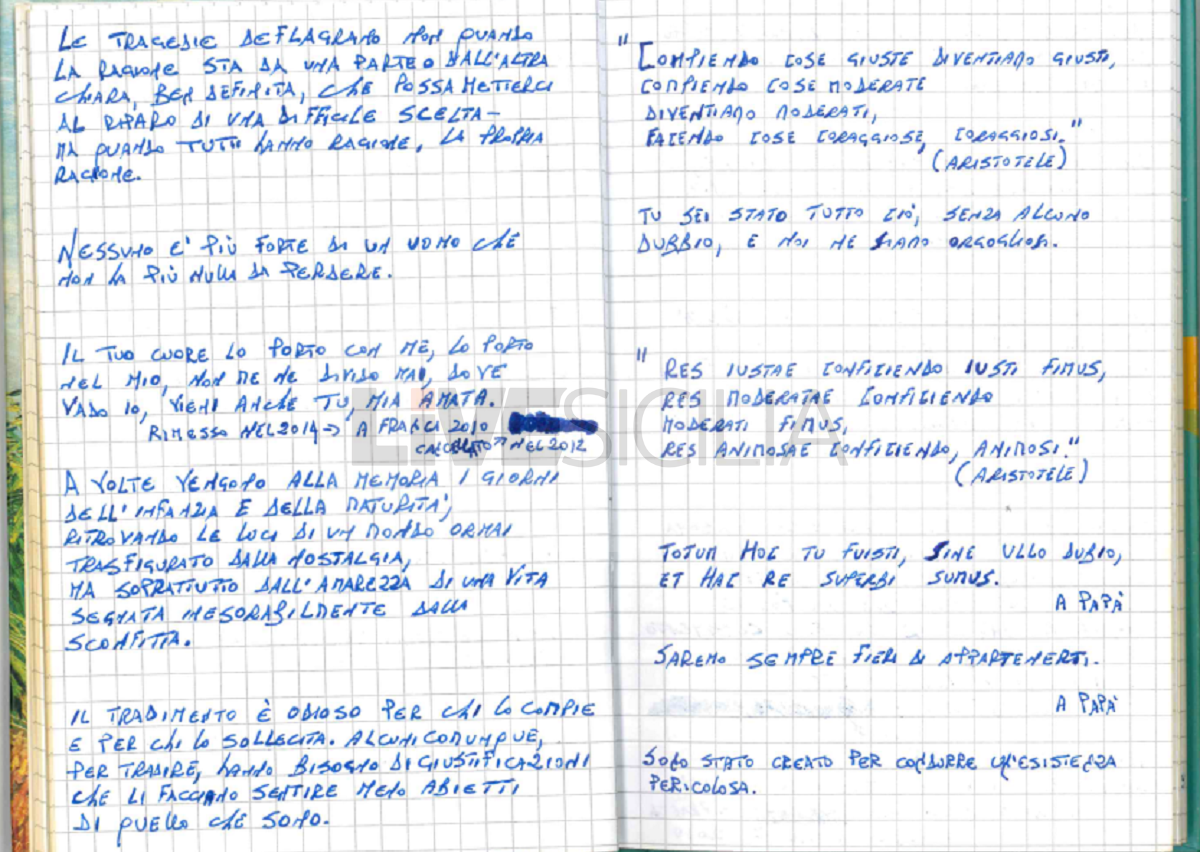 LE TRAGEDIE DEFLAGRANO NON QUANDO
LA RAGIONE STA DA UNA PARTE O DALL'ALTRA
CHIARA, BEN DEFINITA, CHE POSSA METTERCI
AL RIPARO DI UNA DIFFICILE SCELTA –
MA QUANDO TUTTI HANNO RAGIONE, LA PROPRIA
RAGIONE.
NESSUNO E' PIÙ FORTE DI UN UOMO CHE
NON HA PIÙ NULLA DA PERDERE.
IL TUO CUORE LO PORTO CON ME, LO PORTO
NEL MIO, NON ME NE DIVIDO MAI, DOVE
VADO IO, VIENI ANCHE TU, MIA AMATA.
RIMESSO NEL 2014 → A FRANCI 2010
CANCELLATO ↗ NEL 2012
A VOLTE VENGONO ALLA MEMORIA I GIORNI
DELL'INFANZIA E DELLA MATURITA',
RITROVANDO LE LUCI DI UN MONDO ORMAI
TRASFIGURATO DALLA NOSTALGIA,
MA SOPRATTUTTO DALL'AMAREZZA DI UNA VITA
SEGNATA INESORABILMENTE DALLA
SCONFITTA.
IL TRADIMENTO È ODIOSO PER CHI LO COMPIE
E PER CHI LO SOLLECITA. ALCUNI COMUNQUE,
PER TRADIRE, HANNO BISOGNO DI GIUSTIFICAZIONI
CHE LI FACCIANO SENTIRE MENO ABIETTI
DI QUELLO CHE SONO.
"COMPIENDO COSE GIUSTE DIVENTIAMO GIUSTI,
COMPIENDO COSE MODERATE
DIVENTIAMO MODERATI,
FACENDO COSE CORAGGIOSE, CORAGGIOSI."
(ARISTOTELE)
TU SEI STATO TUTTO CIÒ, SENZA ALCUNO
DUBBIO, E NOI NE SIAMO ORGOGLIOSI.
"RES IUSTAE CONFICIENDO IUSTI FIMUS,
RES MODERATAE CONFICIENDO
MODERATI FIMUS,
RES ANIMOSAE CONFICIENDO, ANIMOSI."
(ARISTOTELE)
TOTUM HOC TU FUISTI, SINE ULLO DUBIO,
ET HAC RE SUPERBI SUMUS.
A PAPÀ
SAREMO SEMPRE FIERI DI APPARTENERTI.
A PAPÀ
SONO STATO CREATO PER CONDURRE UN'ESISTENZA
PERICOLOSA.
LIVESICILIA